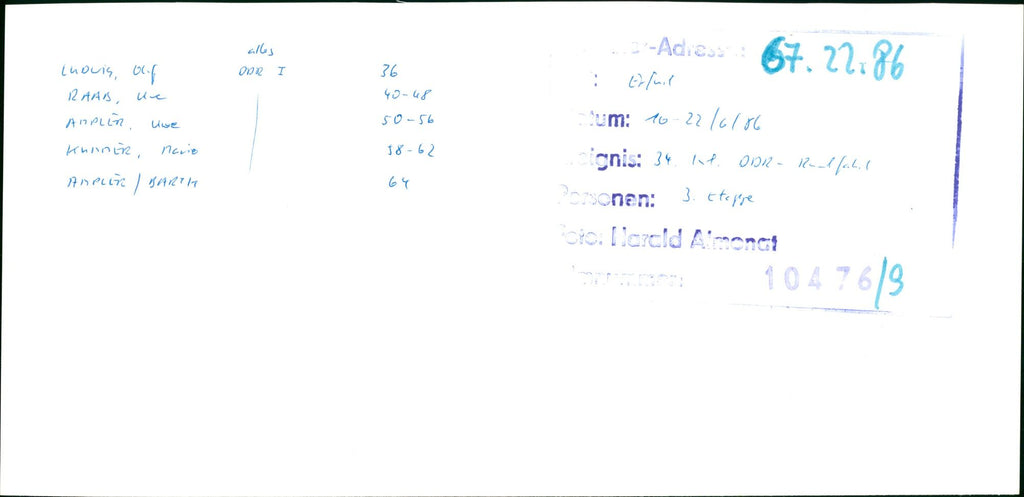 alles
LUDWIG, Olaf DDR I 36
RAAB, Uwe 40-48
AMPLER, Uwe 50-56
KUMMER, Mario 58-62
AMPLER / BARTH 64
er-Adresse: 67.22.86
: Erfurt
tum: 10-22/6/86
eignis: 34. Int. DDR- Rundfahrt
Personen: 3. Etappe
Foto: Harald Almonat
10476/9